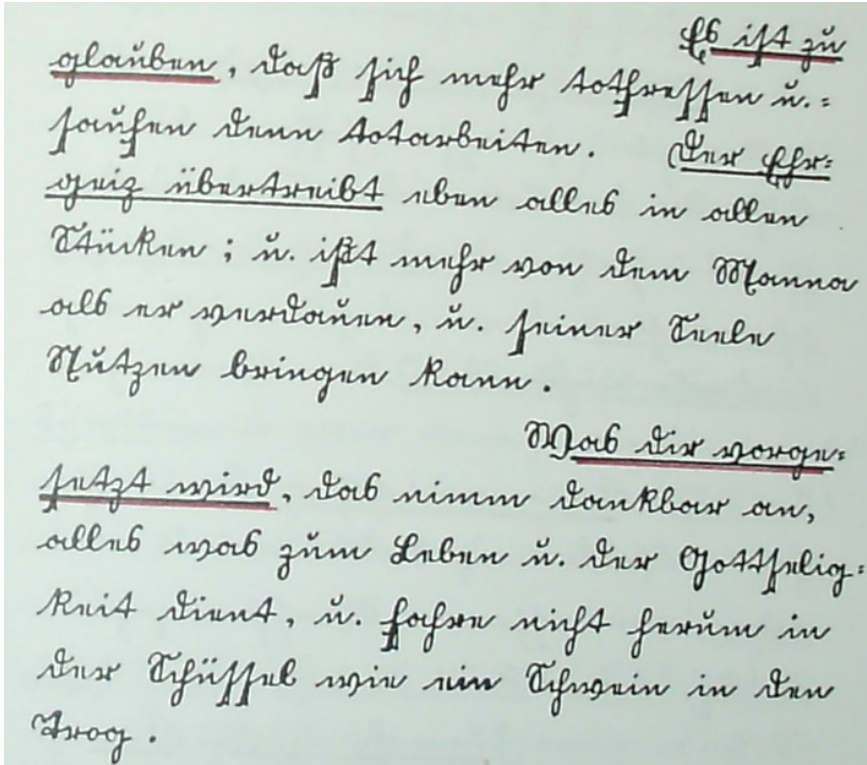 Es ist zu
glauben, daß sich mehr totfressen u.=
saufen denn totarbeiten. Der Ehr=
geiz übertreibt eben alles in allen
Stücken; u. ißt mehr von dem Manna
als er verdauen, u. seiner Seele
Nutzen bringen kann.
Was dir vorge=
setzt wird, das nimm dankbar an,
alles was zum Leben u. der Gottselig=
keit dient, u. fahre nicht herum in
der Schüssel wie ein Schwein in den
Trog.